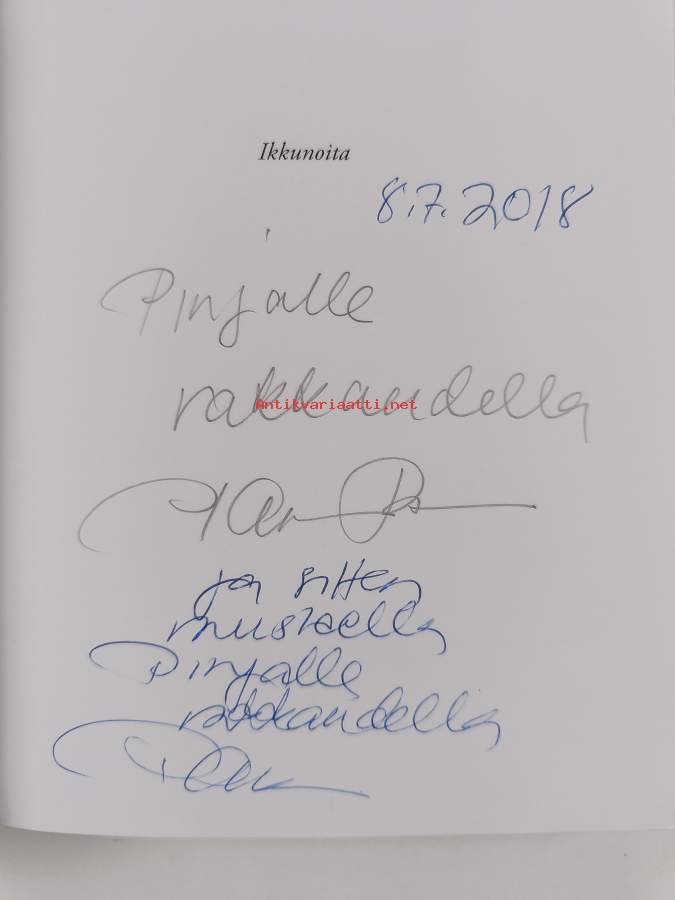 Ikkunoita
8.7.2018
Pinjalle
rakkaudella
Antikvariaatti.net
ja sitten
musteella
Pinjalle
rakkaudella